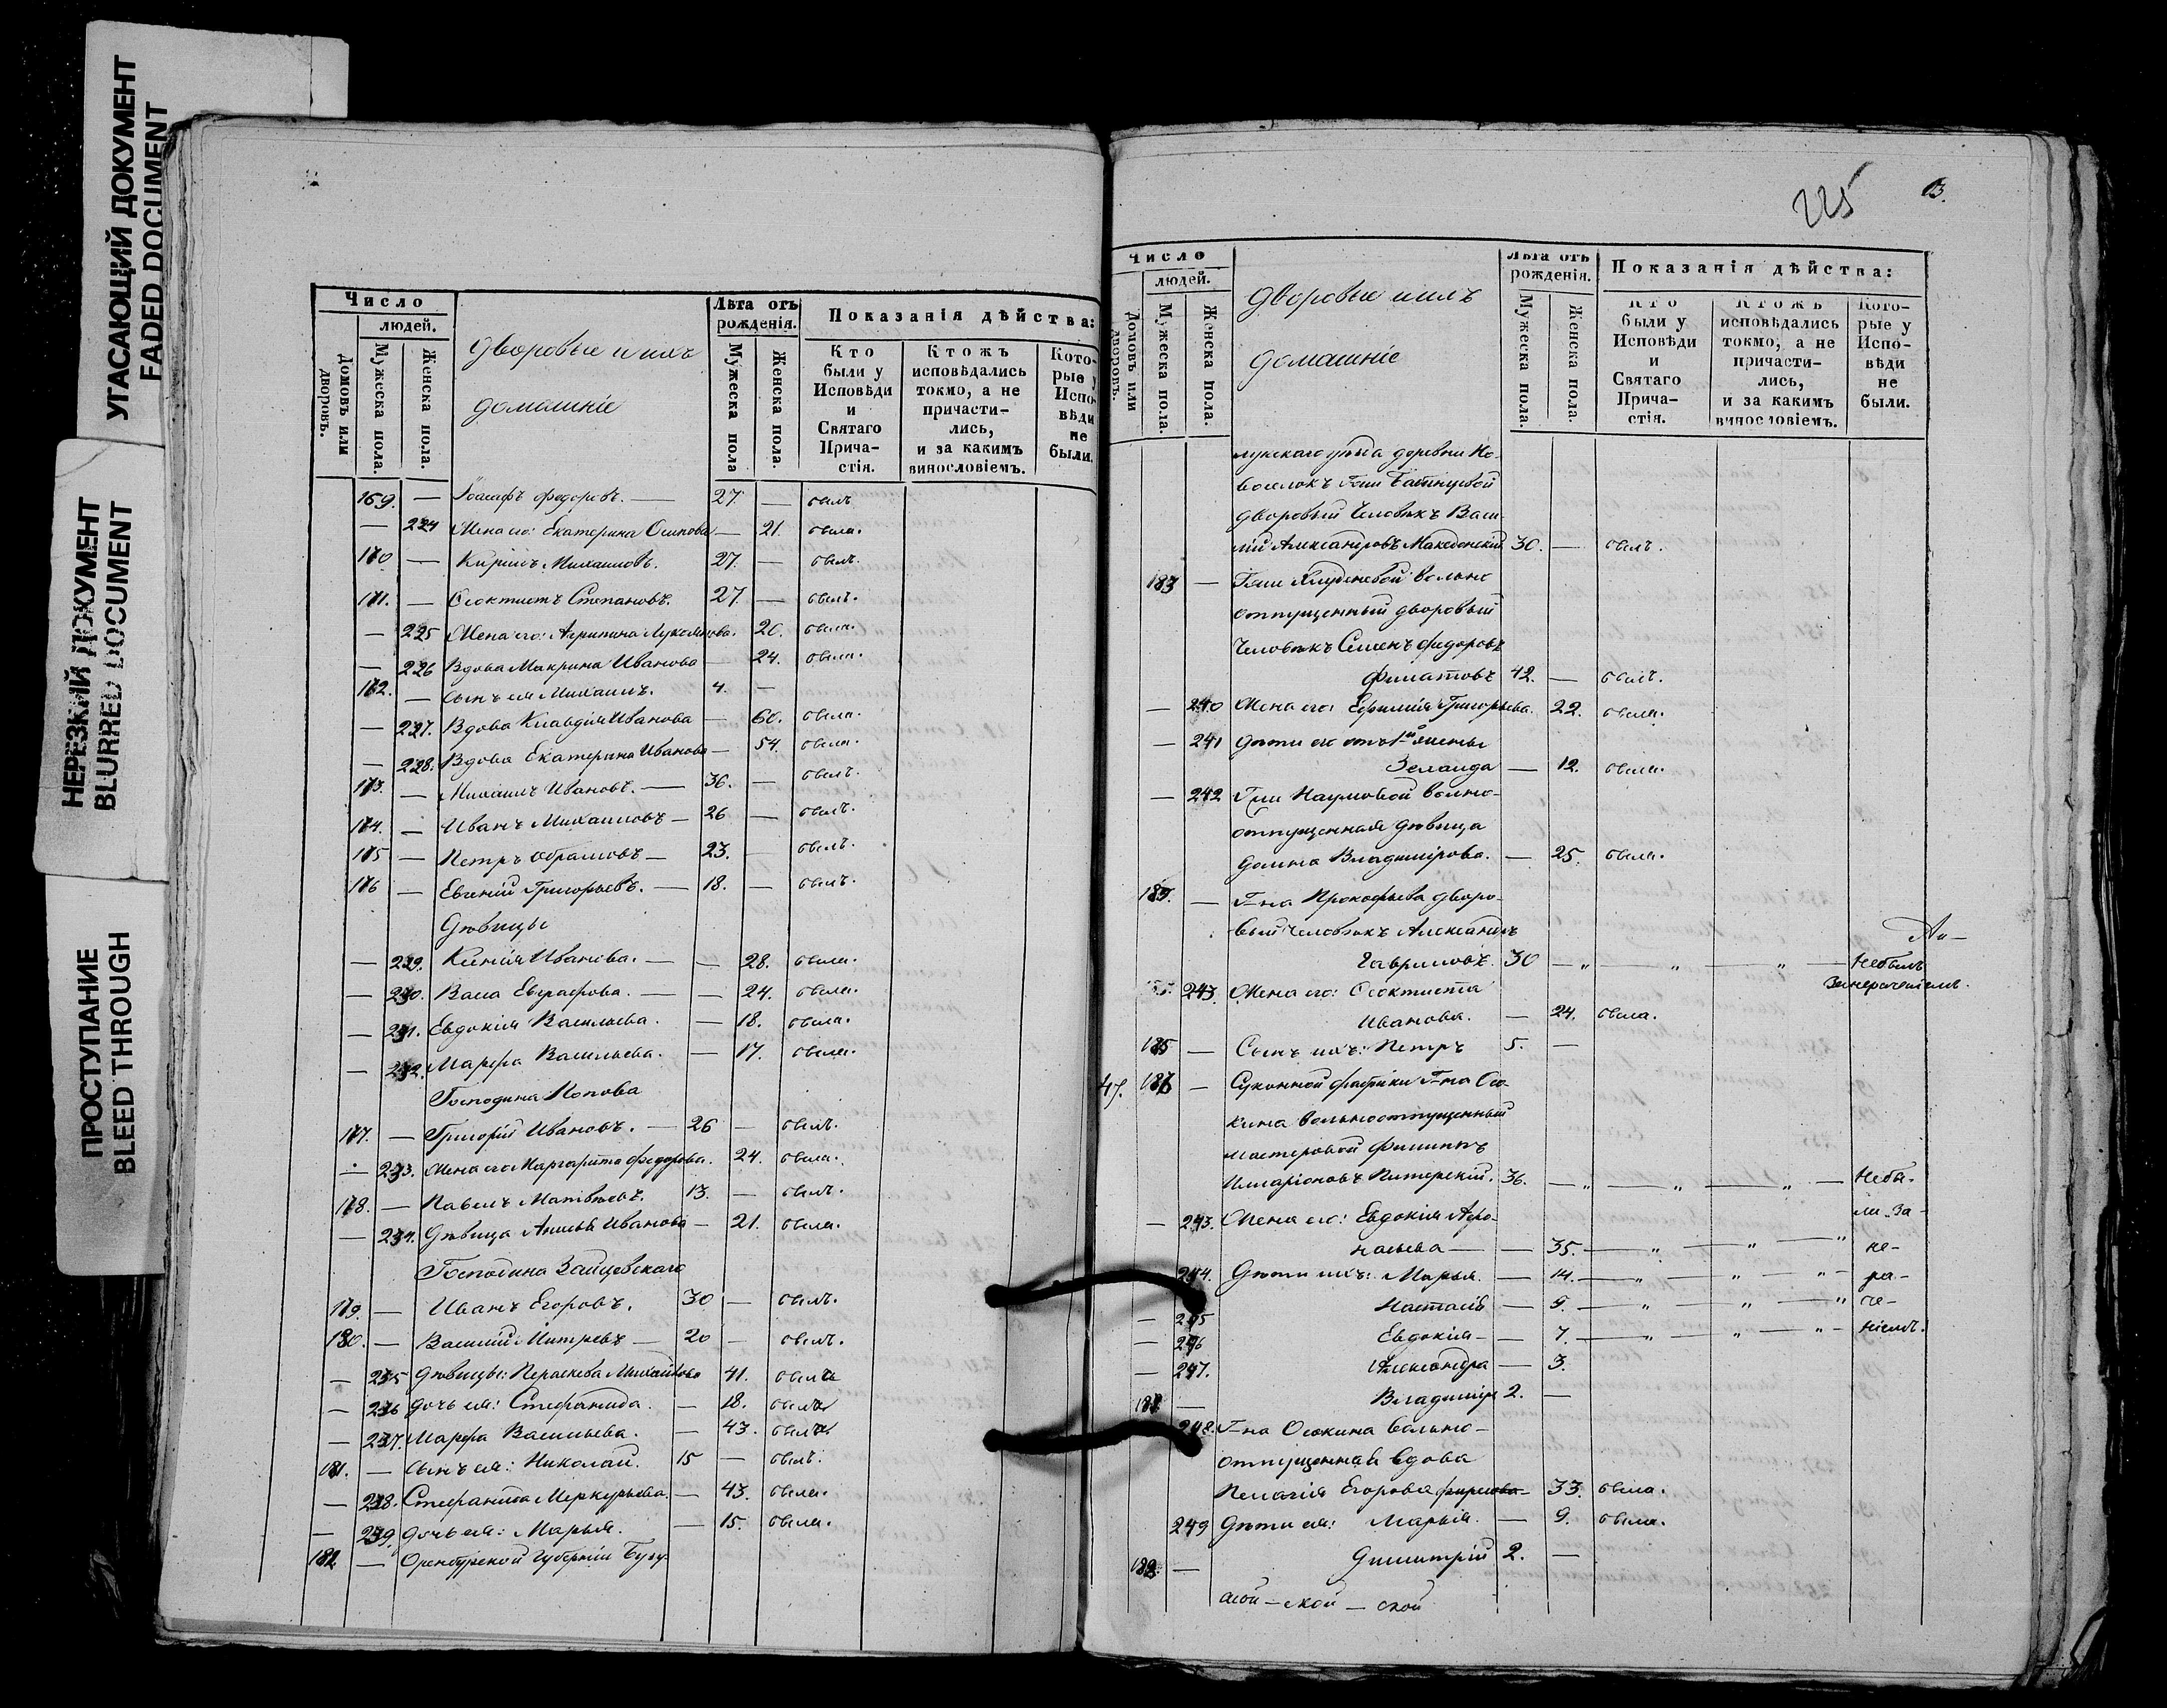 УГАСАЮЩИЙ ДОКУМЕНТ
FADED DOCUMENT
НЕРЕЗКИЙ ДОКУМЕНТ
BLURRED DOCUMENT
ПРОСТУПАНИЕ
BLEED THROUGH
Число
людей.
Домовъ или дворовъ.
Мужеска пола.
Женска пола.
Дворовые и ихъ
домашніе
Лѣта отъ рожденія.
Мужеска пола
Женска пола.
Показанія дѣйства:
Кто были у Исповѣди и Святаго Прича- стія.
Ктожъ исповѣдались токмо, а не причасти- лись, и за какимъ винословіемъ.
Кото- рые у Испо- вѣди не были.
169. — Іоасафъ Федоровъ. — 27 — былъ
— 224 Жена его: Екатерина Осипова — 21. была.
170 — Кирилъ Михаиловъ. 27. — былъ.
171. — Феоктистъ Степановъ. 27. — былъ.
— 225 Жена его: Агрипина 20. была.
— 226 Вдова Макрина Иванова — 24. была.
172. — Сынъ ея Михаилъ. 4. —
— 227. Вдова Клавдія Иванова — 60. была.
— 228. Вдова Екатерина Иванова — 54. была.
173. — Михаилъ Ивановъ. — 36. — былъ.
174. — Иванъ Михаиловъ — 26 — былъ.
175 — Петръ Абрамовъ — 23. — былъ.
176 — Евгеній Григорьевъ. — 18. — былъ.
Дѣвицы
— 229. Ксенія Иванова. — — 28. была.
— 230. Васа Евграфова. — — 24. была.
— 231. Евдокія Васильева. — 18. была.
— 232. Марфа Васильева. — 17. была.
Господина Попова
177. — Григорій Ивановъ. — 26 — былъ.
— 233. Жена его Маргарита Федорова. 24. была.
178. — Павелъ Матвѣевъ. 13. — былъ.
— 234. Дѣвица Иванова — 21. была.
Господина Зайцевскаго
179. — Иванъ Егоровъ. 30 — былъ.
180. — Василій Митревъ — 20 — былъ.
— 235 Дѣвицы: Пераскева Михайлова 41. была
— 236 дочь ея: Стефанида. — 18. была
— 237. Марфа Васильева. — 43. была
181. — Сынъ ея: Николай. 15 — былъ.
— 238. Стефанида Меркурьева. — 43. была.
— 239. Дочь ея: Марья. — 15. была.
182 — Оренбургской Губерніи Бузу-
225
13.
Число
людей.
Домовъ или дворовъ.
Мужеска пола.
Женска пола.
Дворовые и ихъ
домашніе
Лѣта отъ рожденія.
Мужеска пола.
Женска пола.
Показанія дѣйства:
Кто были у Исповѣди и Святаго Прича- стія.
Ктожъ исповѣдались токмо, а не причасти- лись, и за какимъ винословіемъ.
Кото- рые у Испо- вѣди не были.
лукскаго уѣзда деревни Но-
воселокъ Гжи
дворовый Человѣкъ Васи-
лій Александровъ Македонскій 30. — былъ.
183 — Гжи вольно
отпущенный дворовый
Человѣкъ Семенъ Федоровъ
Филатовъ 42. — былъ.
— 240 Жена его: Евфимія Григорьева. 22. была.
— 241 Дѣти отъ 1й жены
— 12. была.
— 242 Гжи Наумовой вольно-
отпущенная дѣвица
Домна Владимірова. — 25. была.
184. — Г-на Прокофьева дворо-
вый человѣкъ Александръ
Гавриловъ. 30 — „ — „ — „ — Небылъ
занерачениемъ.
243. Жена его: Феоктиста
Иванова. — 24. была.
185 — Сынъ ихъ: Петръ 5. —
47. 186 — Суконной фабрики Г-на Осо-
кина вольноотпущенный
мастеровой Филиппъ
Иларіоновъ Питерскій. 36. — „ — „ — „ — Небы-
— 243. Жена его: Евдокія Афо- ли за-
насьева — — 35. — „ — „ — „ не-
244. Дѣти ихъ: Марья. — 14. — „ — „ — „ — ра-
— 245 Настасія — 9. — „ — „ — „ че-
— 246 Евдокія — — 7. — „ — „ — „ — ніемъ.
— 247. Александра — 3.
— Владиміръ 2. —
248. Г-на Осокина вольно-
отпущенная вдова
Пелагія Егорова — 33. была.
249 Дѣти ея: Марья. — 9. была.
188. — Димитрій 2. —